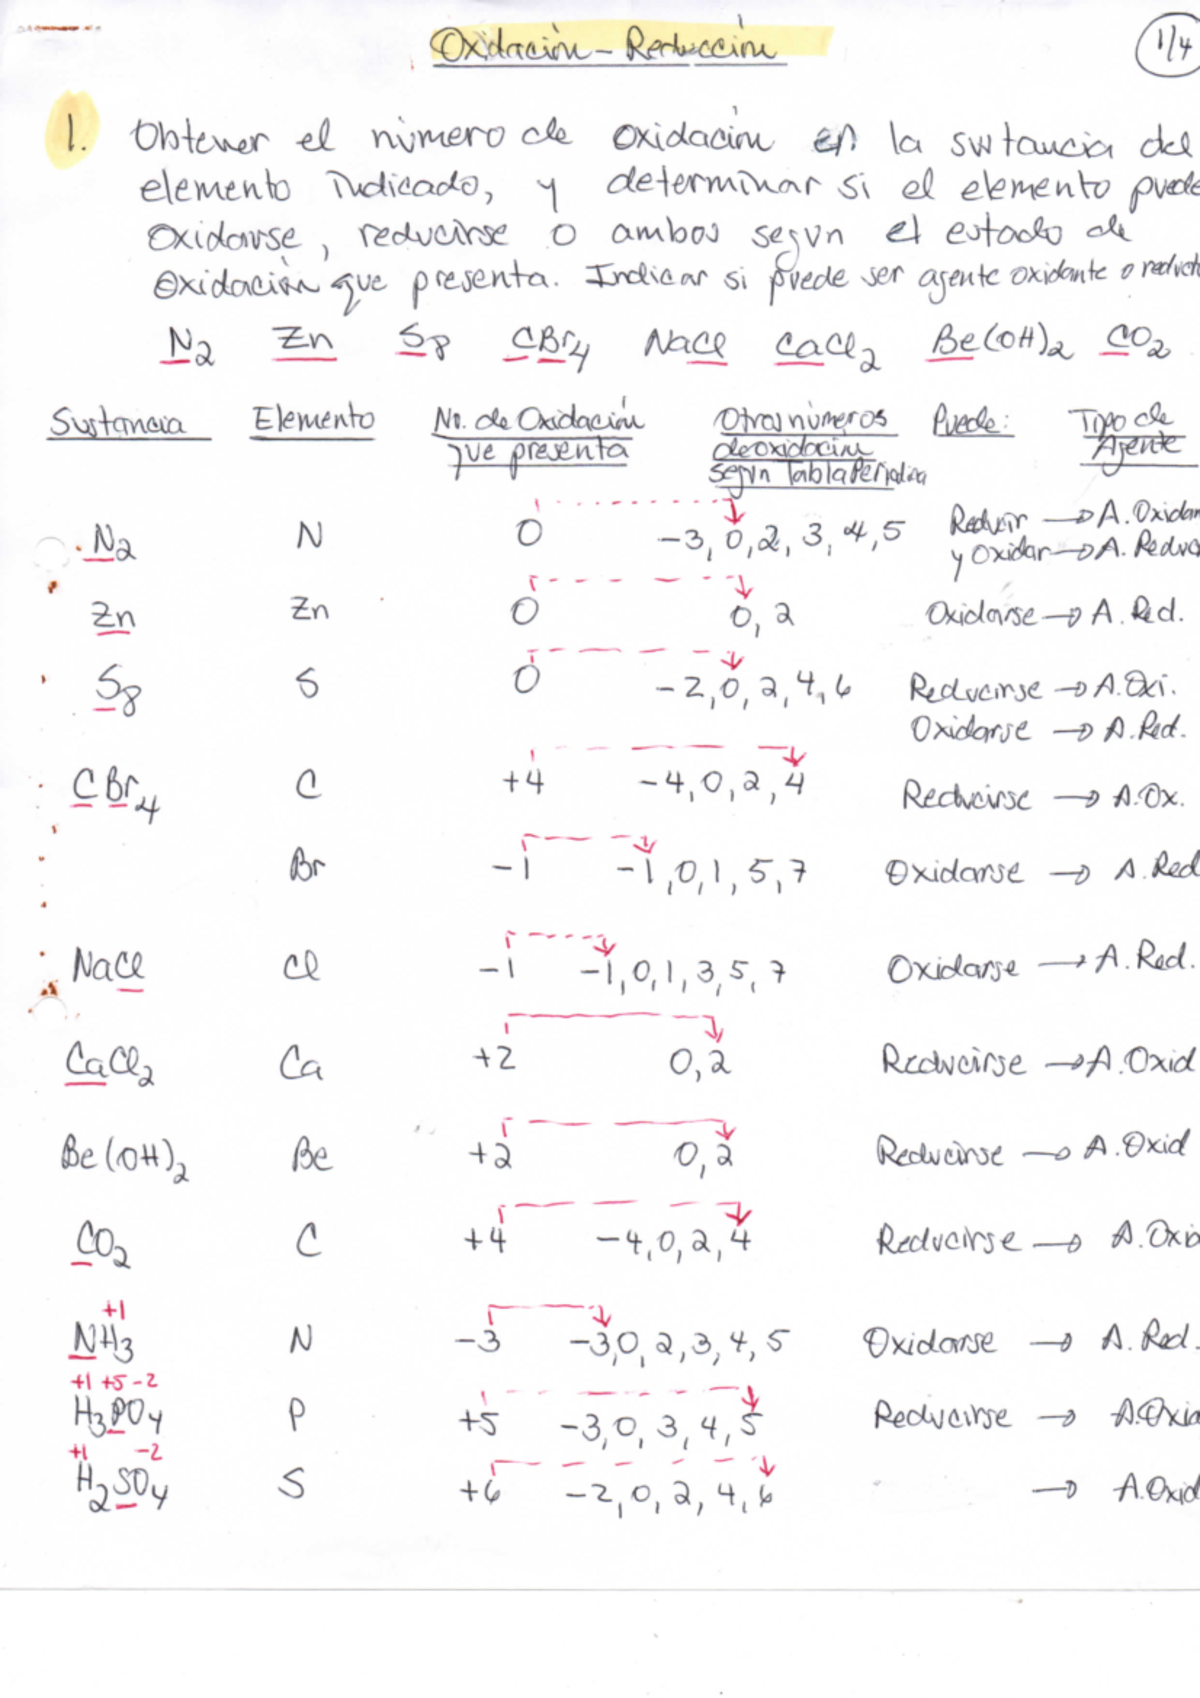 Oxidación - Reducción
1/4
1. Obtener el número de oxidación en la sustancia del
elemento indicado, y determinar si el elemento puede
oxidarse, reducirse o ambos segun el estado de
oxidación que presenta. Indicar si puede ser agente oxidante o reduct
N2 Zn S8 CBr4 NaCl CaCl2 Be(OH)2 CO2
Sustancia Elemento No. de Oxidación que presenta Otros números de oxidación segun Tabla Periodica Puede: Tipo de Agente
N2 N 0 -3, 0, 2, 3, 4, 5 Reducir → A. Oxidan
y Oxidar → A. Reduc
Zn Zn 0 0, 2 Oxidarse → A. Red.
S8 S 0 -2, 0, 2, 4, 6 Reducirse → A. Oxi.
Oxidarse → A. Red.
CBr4 C +4 -4, 0, 2, 4 Reducirse → A. Ox.
Br -1 -1, 0, 1, 5, 7 Oxidarse → A. Red
NaCl Cl -1 -1, 0, 1, 3, 5, 7 Oxidarse → A. Red.
CaCl2 Ca +2 0, 2 Reducirse → A. Oxid
Be(OH)2 Be +2 0, 2 Reducirse → A. Oxid
CO2 C +4 -4, 0, 2, 4 Reducirse → A. Oxid
+1
NH3 N -3 -3, 0, 2, 3, 4, 5 Oxidarse → A. Red.
+1 +5 -2
H3PO4 P +5 -3, 0, 3, 4, 5 Reducirse → A. Oxid
+1 -2
H2SO4 S +6 -2, 0, 2, 4, 6 → A. Oxid